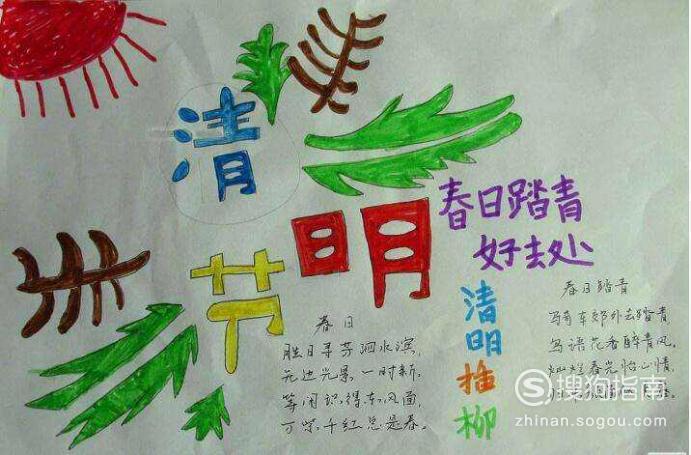 清
明
节
春日踏青
好去处
清明插柳
春日
胜日寻芳泗水滨,
无边光景一时新,
等闲识得东风面,
万紫千红总是春。
春日踏青
车郊外去踏青
鸟语花香醉青风,
春光怡心情,
搜狗指南
zhinan.sogou.com